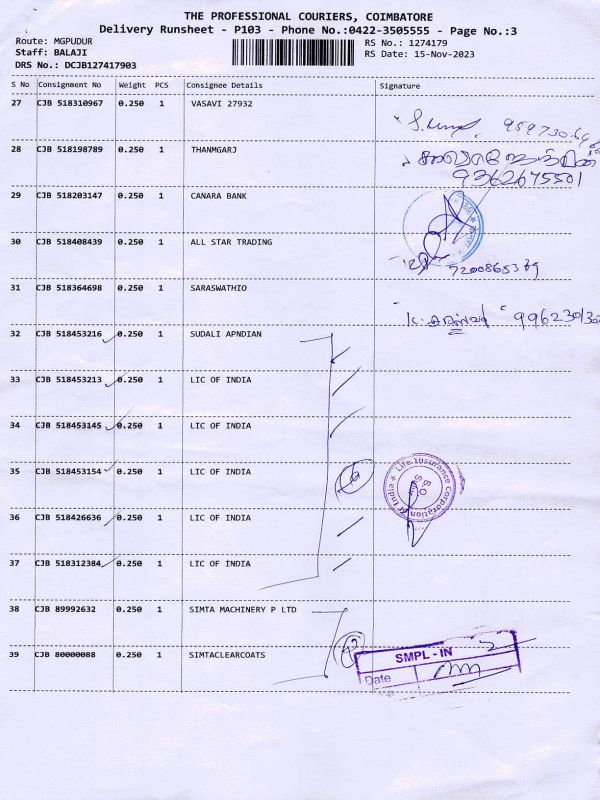 THE PROFESSIONAL COURIERS, COIMBATORE
Delivery Runsheet - P103 - Phone No.:0422-3505555 - Page No.:3
Route: MGPUDUR
Staff: BALAJI
DRS No.: DCJB127417903
RS No.: 1274179
RS Date: 15-Nov-2023
S No Consignment No Weight PCS Consignee Details Signature
27 CJB 518310967 0.250 1 VASAVI 27932
28 CJB 518198789 0.250 1 THANMGARJ
9362675501
29 CJB 518203147 0.250 1 CANARA BANK
30 CJB 518408439 0.250 1 ALL STAR TRADING
31 CJB 518364698 0.250 1 SARASWATHIO
32 CJB 518453216 0.250 1 SUDALI APNDIAN
33 CJB 518453213 0.250 1 LIC OF INDIA
34 CJB 518453145 0.250 1 LIC OF INDIA
35 CJB 518453154 0.250 1 LIC OF INDIA
Life Insurance Corporation Of India
36 CJB 518426636 0.250 1 LIC OF INDIA
37 CJB 518312384 0.250 1 LIC OF INDIA
38 CJB 89992632 0.250 1 SIMTA MACHINERY P LTD
39 CJB 80000088 0.250 1 SIMTACLEARCOATS
SMPL - IN
Date